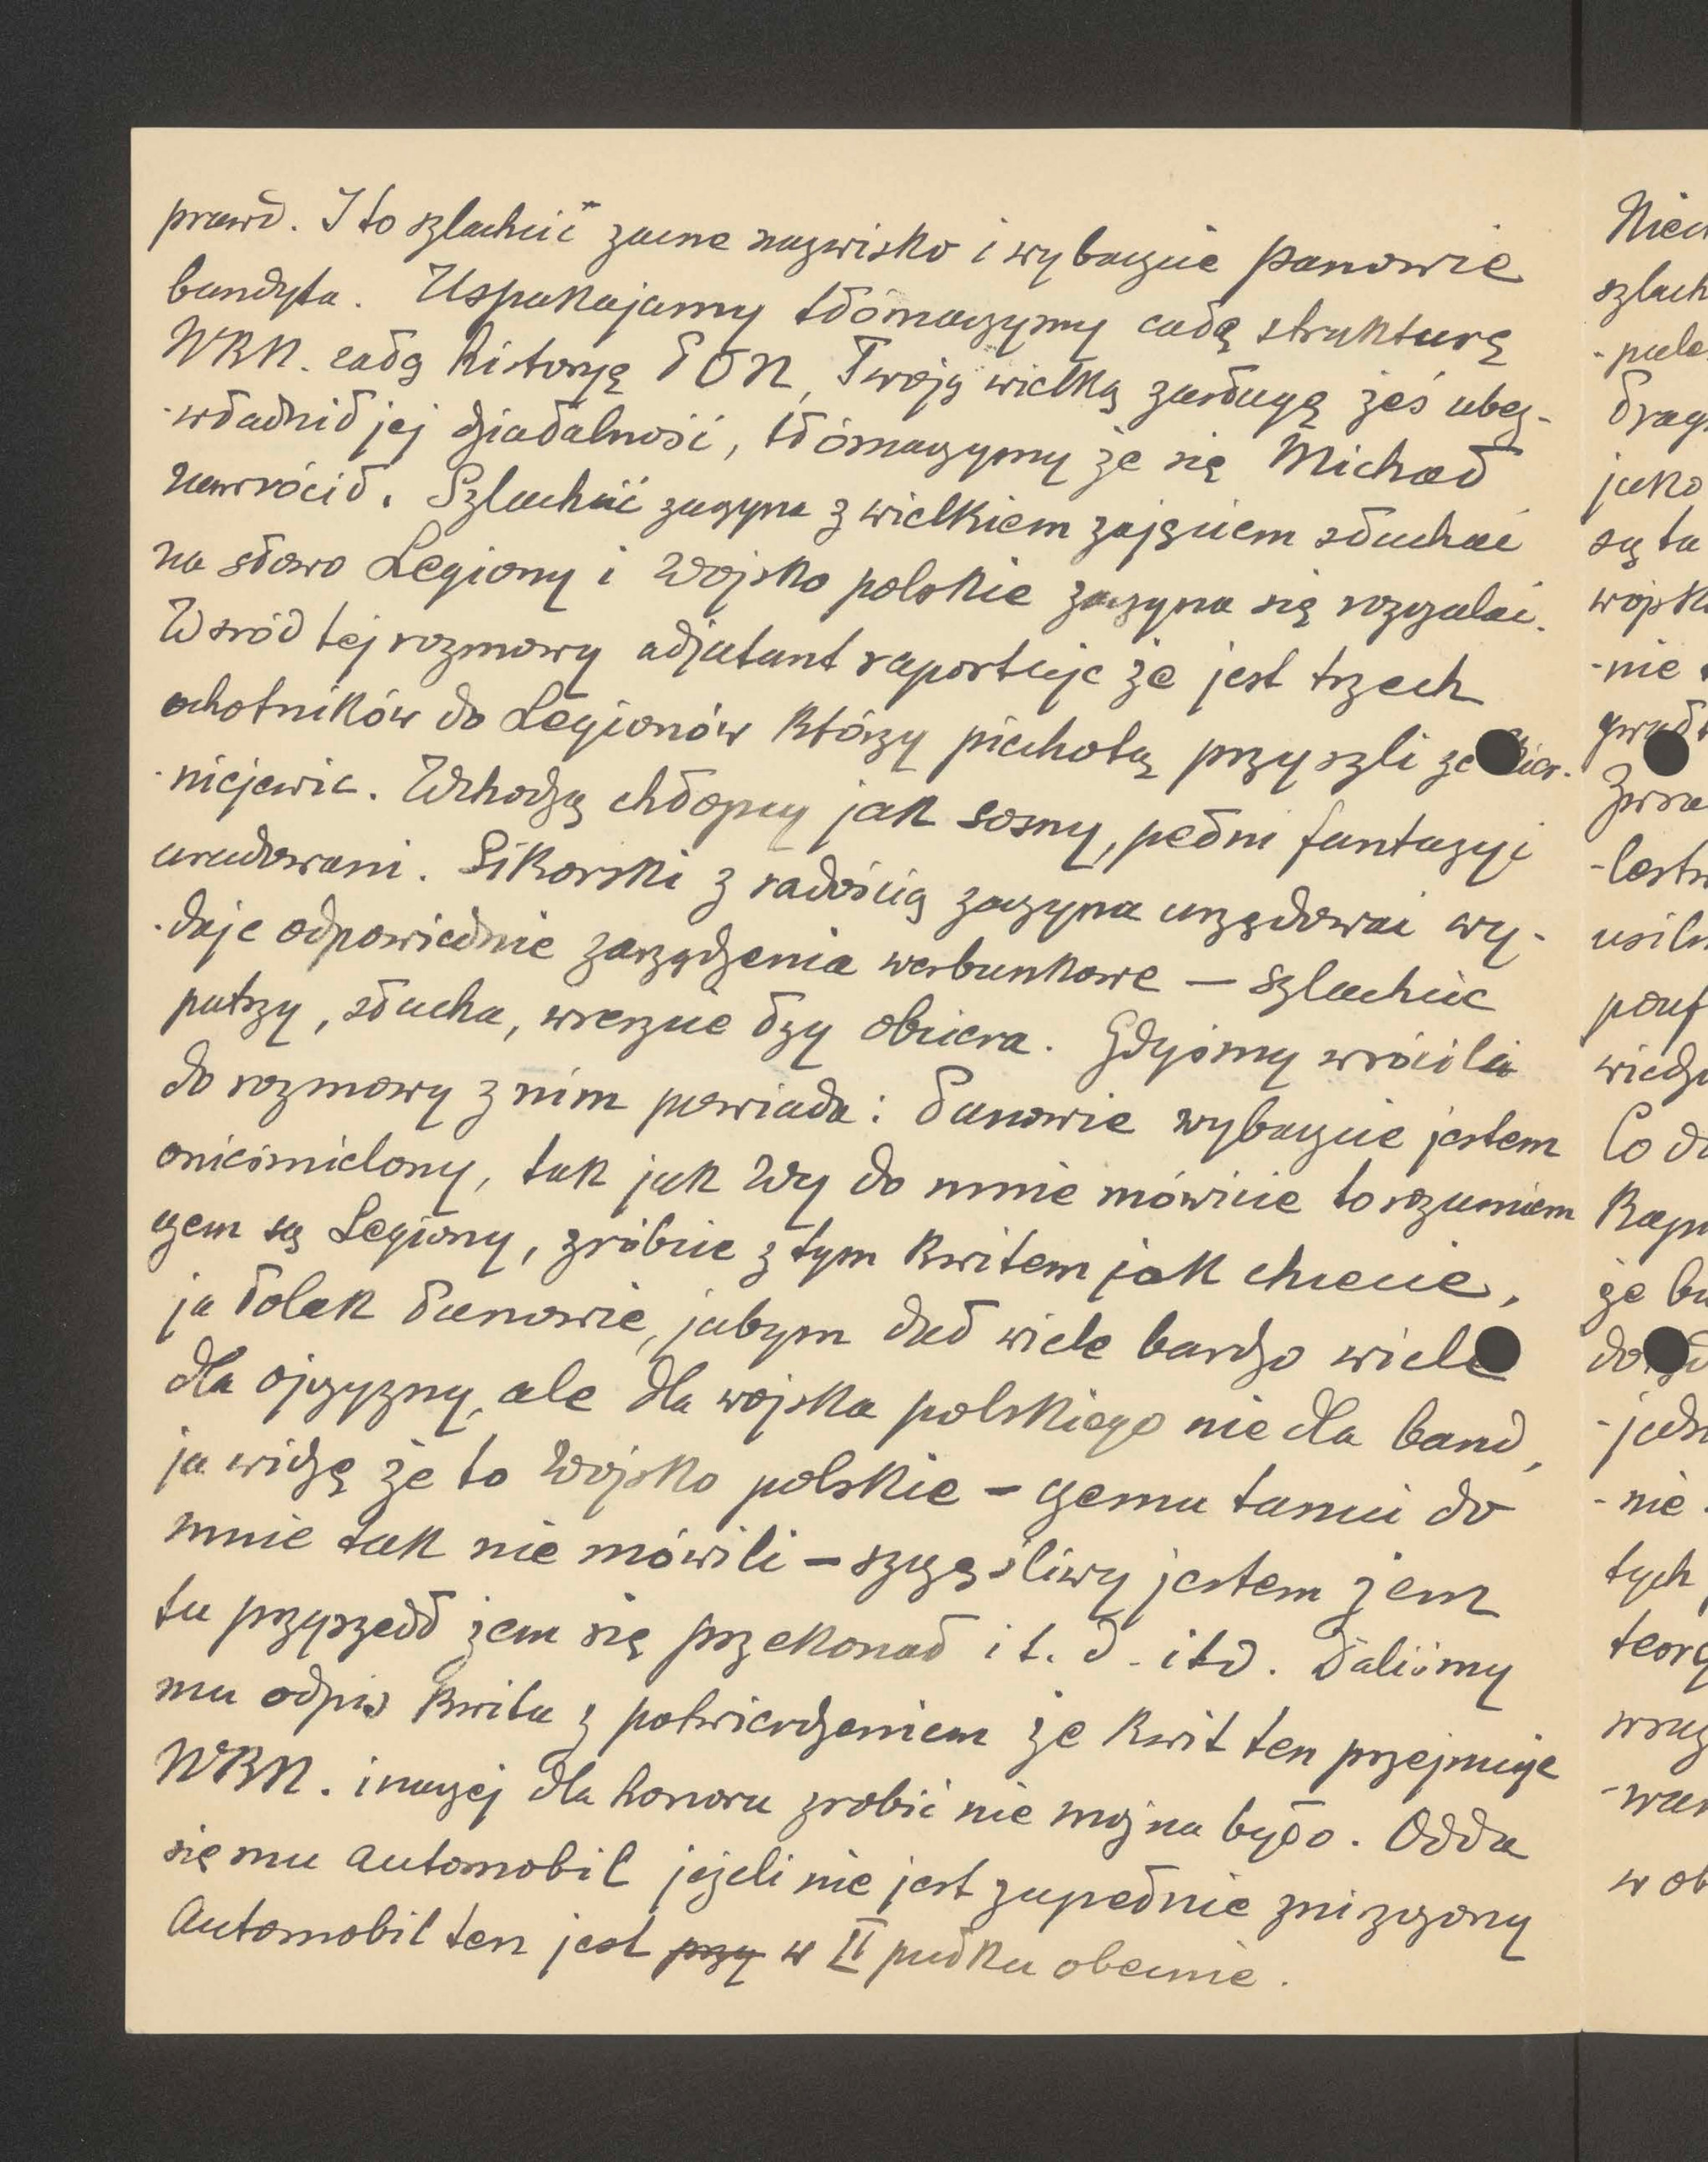 prawd. I to szlachcić zacne nazwisko i wybaczcie panowie
bandyta. Uspakajamy tłómaczymy całą strukturę
WBN. całą historyę PON, Twoją wielką zasługę żeś ubez-
-władnił jej działalność, tłómaczymy że się Michał
nawrócił. Szlachcić zaczyna z wielkiem zajęciem słuchać
na słowo Legiony i Wojsko polskie zaczyna się rozczulać.
Wsród tej rozmowy adjutant raportuje że jest trzech
ochotników do Legionów którzy piechotą przyszli ze Skier-
-niejewic. Wchodzą chłopcy jak sosny, pełni fantazyi
uradowani. Sikorski z radością zaczyna urzędować wy-
-daje odpowiednie zarządzenia werbunkowe — szlachcic
patrzy, słucha, wreszcie łzy obciera. Gdyśmy wrócili
do rozmowy z nim powiada: Panowie wybaczcie jestem
onieśmielony, tak jak Wy do mnie mówicie to rozumiem
czem są Legiony, zróbcie z tym kwitem jak chcecie,
ja Polak Panowie, jabym dał wiele bardzo wiele
dla ojczyzny, ale dla wojska polskiego nie dla band,
ja widzę że to Wojsko polskie – czemu tamci do
mnie tak nie mówili – szczęśliwy jestem żem
tu przyszedł żem się przekonał i t. d. itd. Daliśmy
mu odpis kwitu z potwierdzeniem że kwit ten przejmuje
WBN. inaczej dla honoru zrobić nie można było. Odda
się mu automobil jeżeli nie jest zupełnie zniszczony
Automobil ten jest przy w II pułku obecnie.
szlach
jako
są ta
-nie
Co
że
-nie
tych
w ob